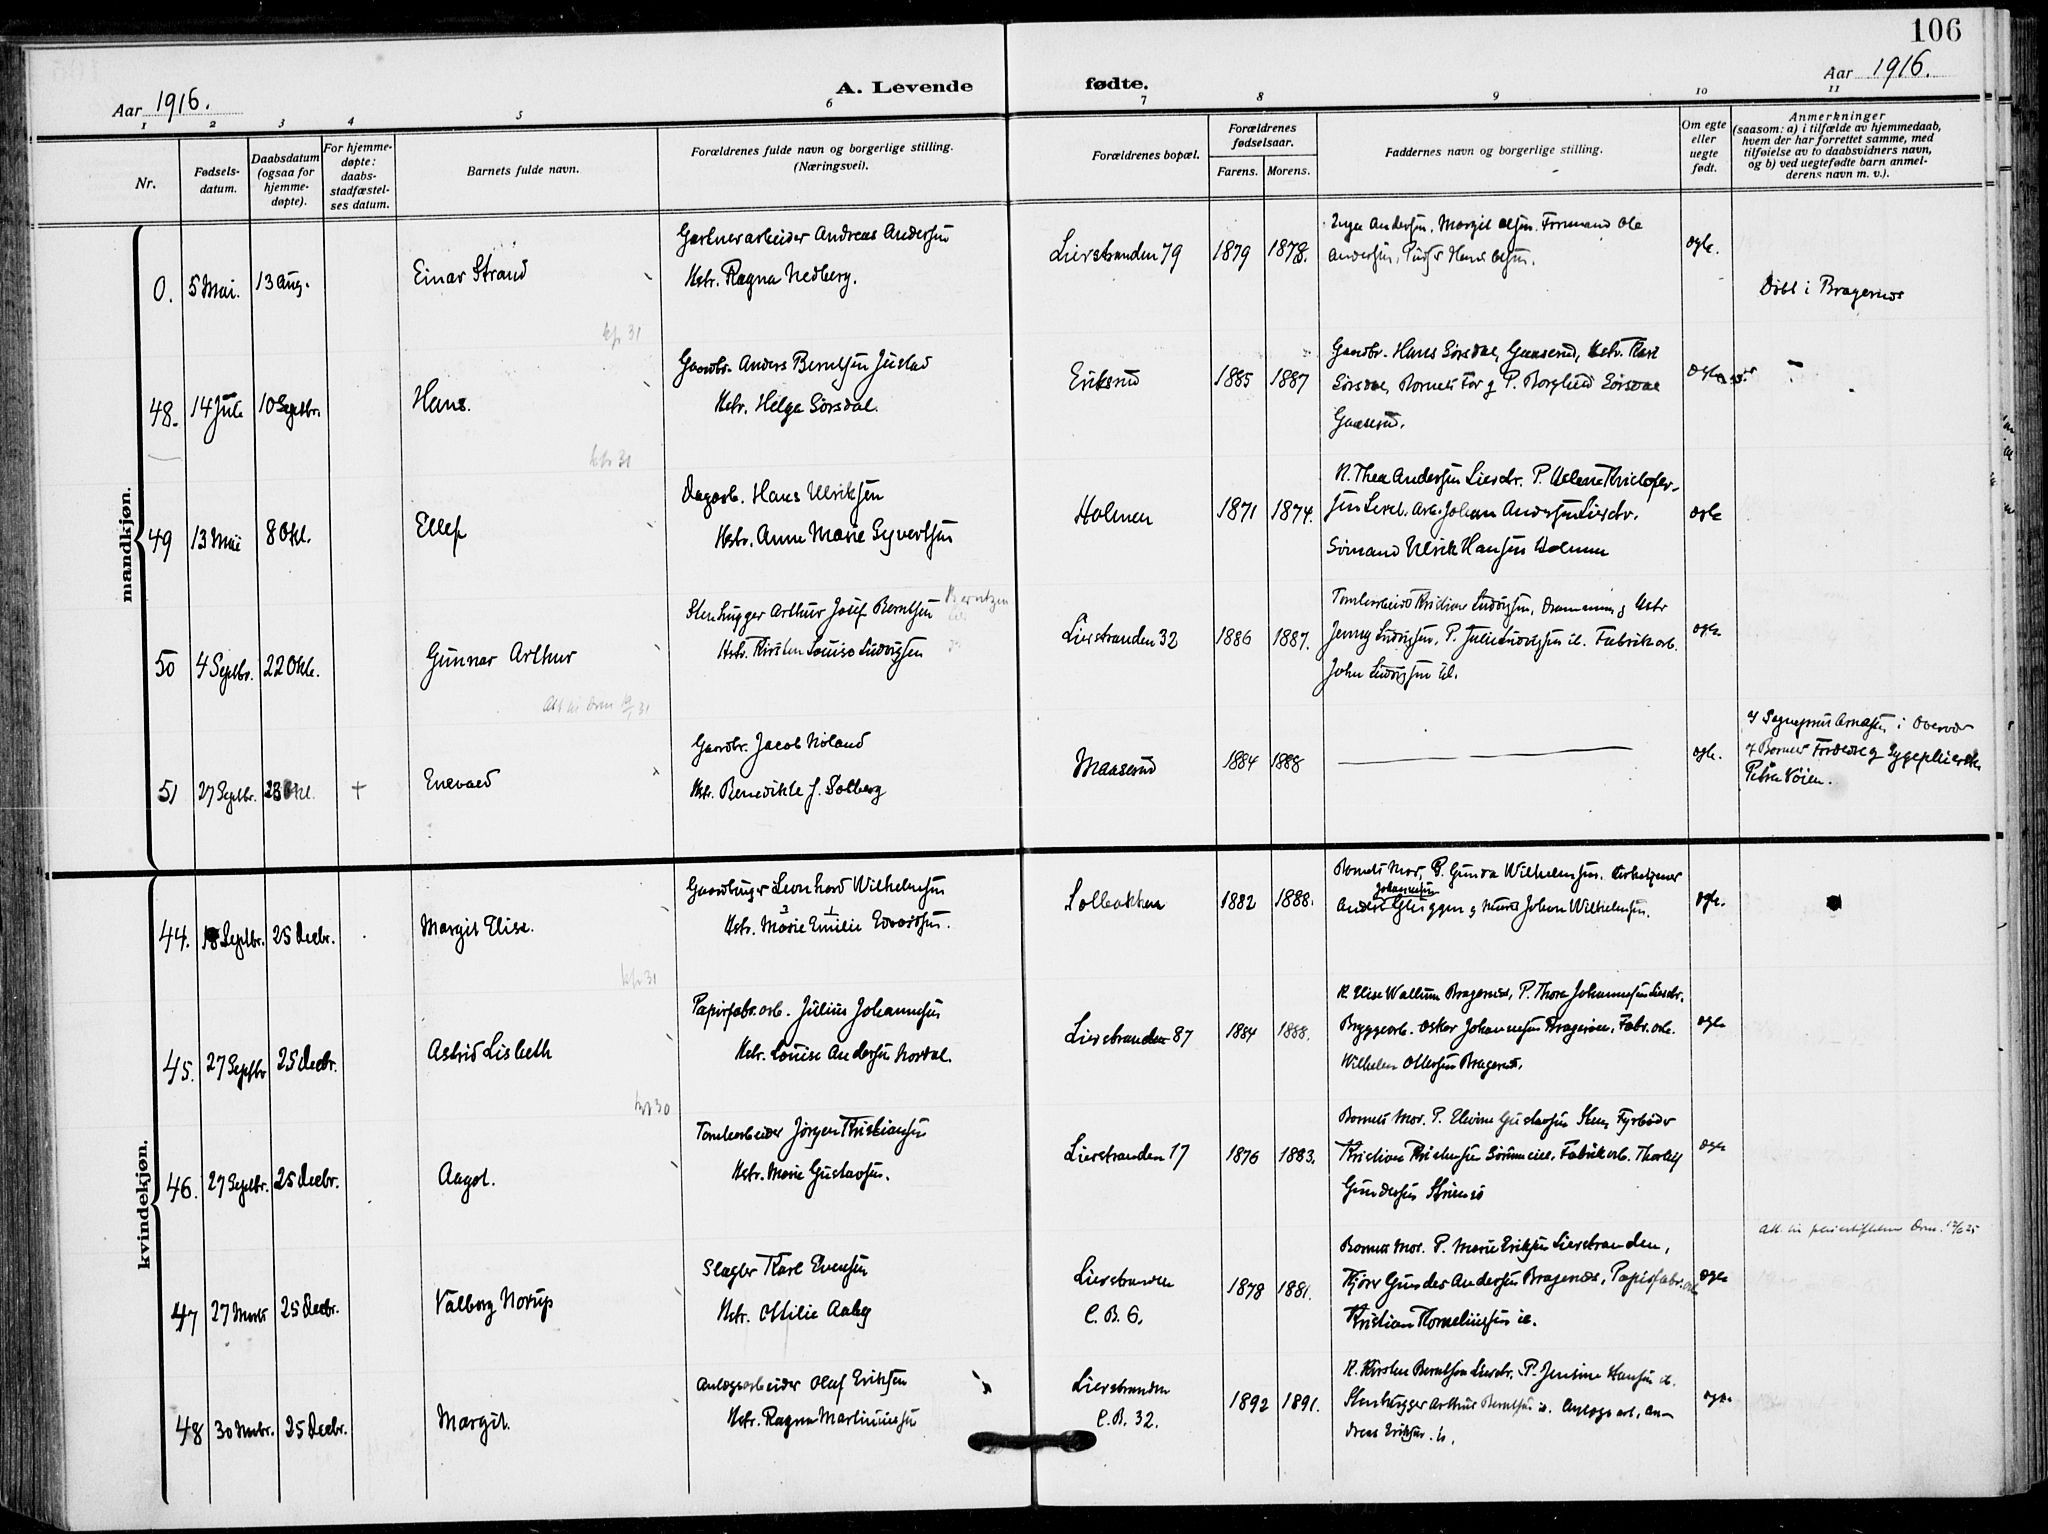 106
Aar 1916.
A. Levende fødte.
Aar 1916.
1 2 3 4 5 6 7 8 9 10 11
Nr.
Fødsels-
datum.
Daabsdatum
(ogsaa for
hjemme-
døpte).
For hjemme-
døpte:
daabs-
stadfæstel-
ses datum.
Barnets fulde navn.
Forældrenes fulde navn og borgerlige stilling.
(Næringsvei).
Forældrenes bopæl.
Forældrenes
fødselsaar.
Farens. Morens.
Faddernes navn og borgerlige stilling.
Om egte
eller
uegte
født.
Anmerkninger
(saasom: a) i tilfælde av hjemmedaab,
hvem der har forrettet samme, med
tilføielse av to daabsvidners navn,
og b) ved uegtefødte barn anmel-
derens navn m. v.).
mandkjøn.
0. 5 Mai. 13 Aug. Einar Strand
Gartnerarbeider Andreas Andersen
Hstr. Ragna Hedberg.
Lierstranden 79 1879 1878.
Inga Andersen, Margit Olsen. Formand Ole
Andersen, Hans Olsen.
egte.
Døbt i Bragernes
kfr 31
48. 14 Juli 10 Septbr. Hans.
Gaardbr. Anders Berntsen Justad
Hstr. Helga Sørsdal.
Eriksrud 1885 1887
Gaardbr. Hans Sørsdal, Gaaserud, Hstr. Kari
Sørsdal, Barnets Far og P. Borghild Sørsdal
Gaaserud.
egte
kfr 31
49 13 Mai 8 Okt. Ellef
Dagarb. Hans Ulriksen
Hstr. Anne Marie Syvertsen
Holmen 1871 1874.
K. Thea Andersen Lierstr. P. Helene Kristofer-
sen Arb. Johan Andersen Lierstr.
Sømand Ulrik Hansen Holmen
egte
50 4 Septbr. 22 Okt. Gunnar Arthur
Stenhugger Arthur Josef Berntsen Berntzen
Hstr. Kirsten Louise Ludvigsen
Lierstranden 32 1886 1887.
Tomtearbeid. Kristian Ludvigsen, Drammen og Hstr
Jenny Ludvigsen, P. Julie Ludvigsen ib. Fabrikarb.
John Ludvigsen ib.
egte
Att. til Drm 31
51 27 Septbr. 23 Okt. + Enevald
Gaardbr. Jacob Høland
Hstr. Benedikte J. Solberg
Maaserud 1884 1888
egte.
af Sogneprest Arnesen i Overvær
af Barnets Forældre og Sygepleierske
Petra Vøien.
kvindekjøn.
44. 18 Septbr. 25 Decbr. Margit Elise.
Gaardbruger Leonhard Wilhelmsen
3 1
Hstr. Marie Emilie Edvardsen.
Solbakken 1882 1888.
Barnets Mor, P. Gunda Wilhelmsen.
Johannesen
Anders Gluggen og Johan Wilhelmsen.
egte.
kfr 31
45. 27 Septbr 25 Decbr. Astrid Lisbeth
Papirfabr.arb. Julius Johannesen
Hstr. Louise Andersen Nordal.
Lierstranden 87 1884 1888.
K. Elise Wallum Bragernes, P. Thora Johannesen Lierstr.
Bryggearb. Oskar Johannesen Bragerøen, Fabr.arb.
Wilhelm Ottersen Bragernes.
egte
kfr 30
46. 27 Septbr. 25 Decbr. Aagot.
Tomtearbeider Jørgen Kristiansen
Hstr. Marie Gustavsen.
Lierstranden 17 1876 1883.
Barnets Mor. P. Elvine Gustavsen Fyrbøder
Kristian Kristensen Fabrikarb. Thorleif
Gundersen Strømsø
egte
Att. til Drm.
47 27 25 Decbr. Valborg Norup
Slagter Karl Evensen
Hstr. Ottilie Aaby
Lierstranden
C. B. 6. 1878 1881.
Barnets Mor. P. Marie Eriksen Lierstranden,
Kjører Gunder Andersen Bragernes, Papirfabr.arb
Kristian Kornelinsen ib.
egte
48 30 25 Decbr. Margit.
Anlægsarbeider Olaf Eriksen
Hstr. Ragna Martinussen
Lierstranden
C.B. 32. 1892 1891.
K. Kirsten Berntsen Lierstr. P. Jensine Hansen ib.
Stenhugger Arthur Berntsen ib. Anlægsarb. An-
dreas Eriksen. ib.
egte